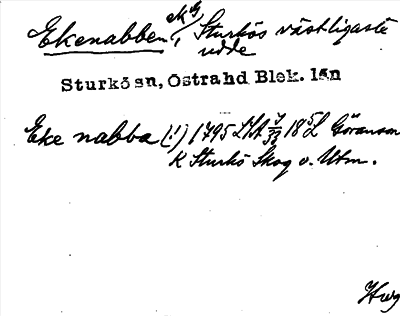 Ekenabben, ek G Sturkös västligaste
udde
Sturkö sn, Östra hd Blek. län
Eke nabba (!) 1795 LSA 18 L Göranson
K Sturkö Skog o. Utm.
Hwg